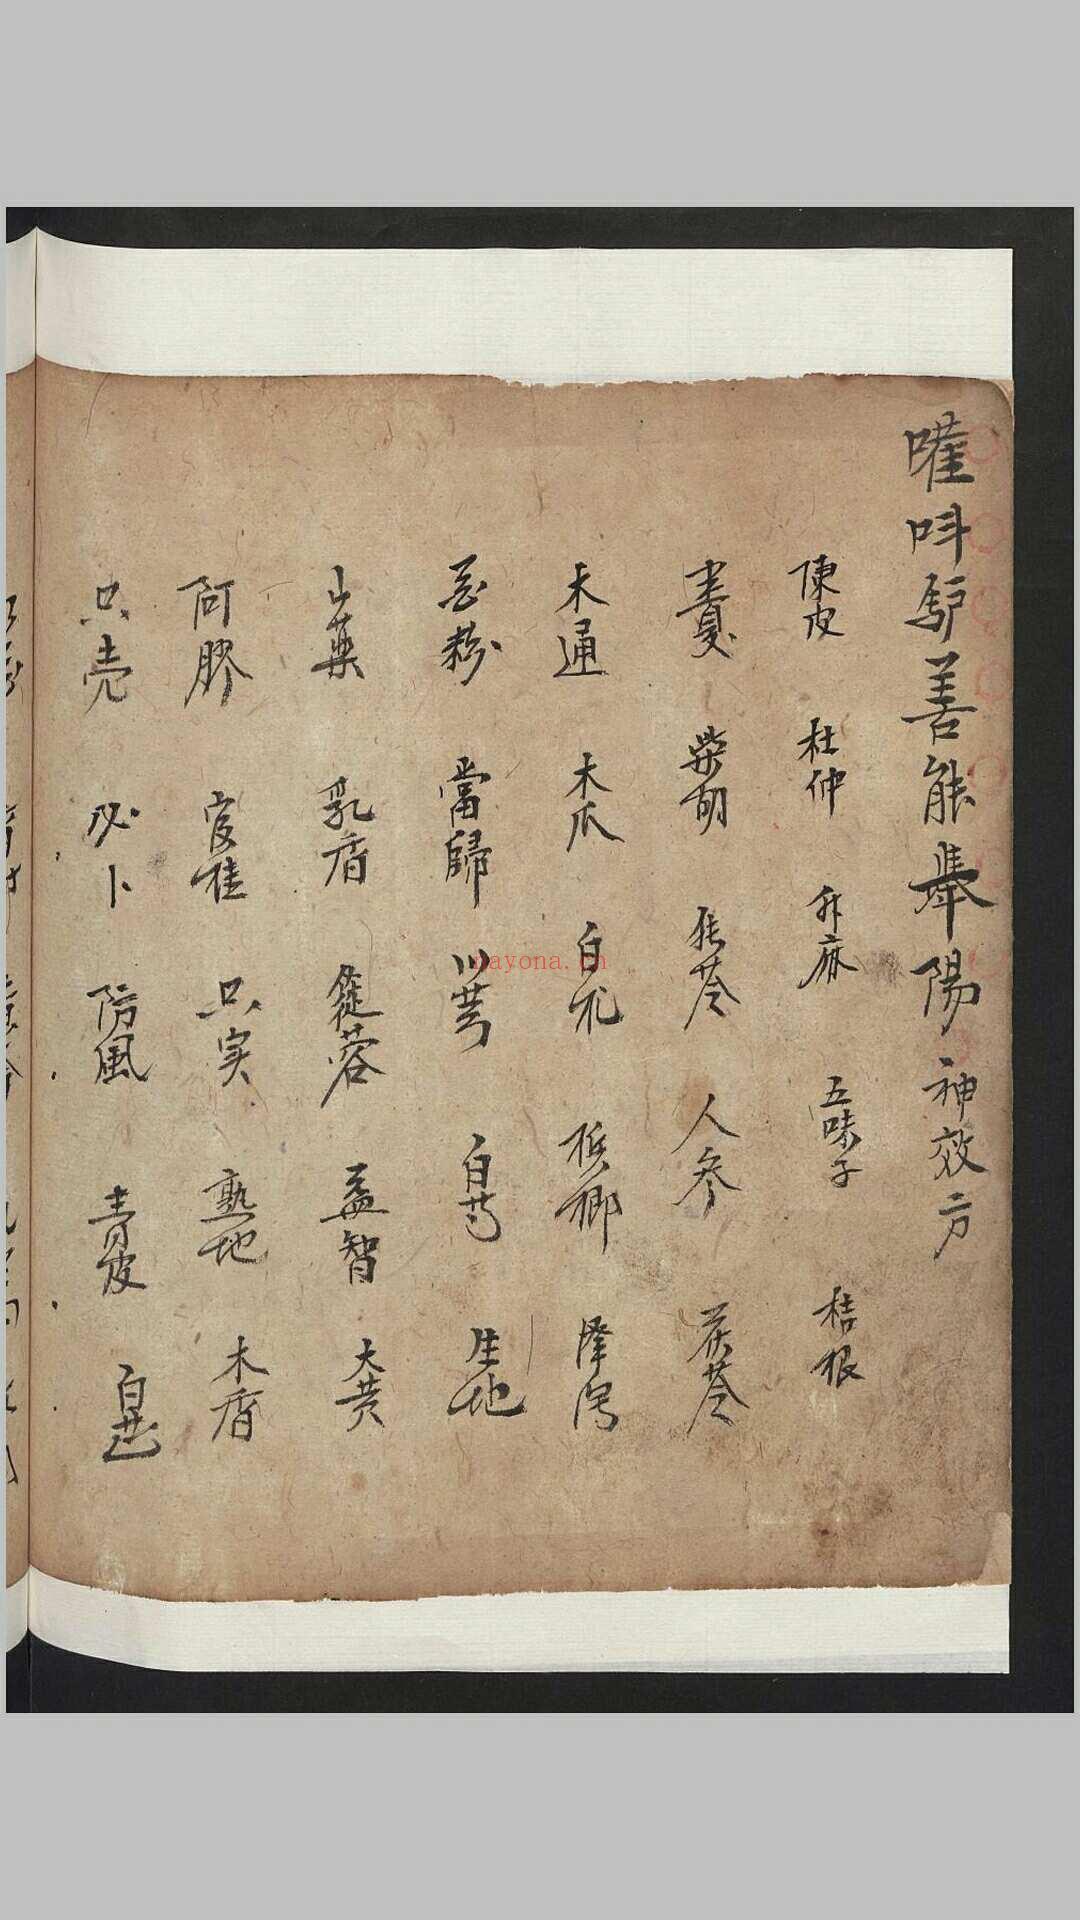 嚾呌馿善能舉陽神效方
陳皮 杜仲 升麻 五味子 桔根
柴胡 苓 人参 茯苓
木通 木瓜 白朮 梹榔 澤泻
粉 當歸 川芎 白芍 生地
山藥 乳香 蓯蓉 益智 大黄
阿膠 官桂 只实 熟地 木香
只壳 必卜 防風 青皮 白芷
nayona.cn